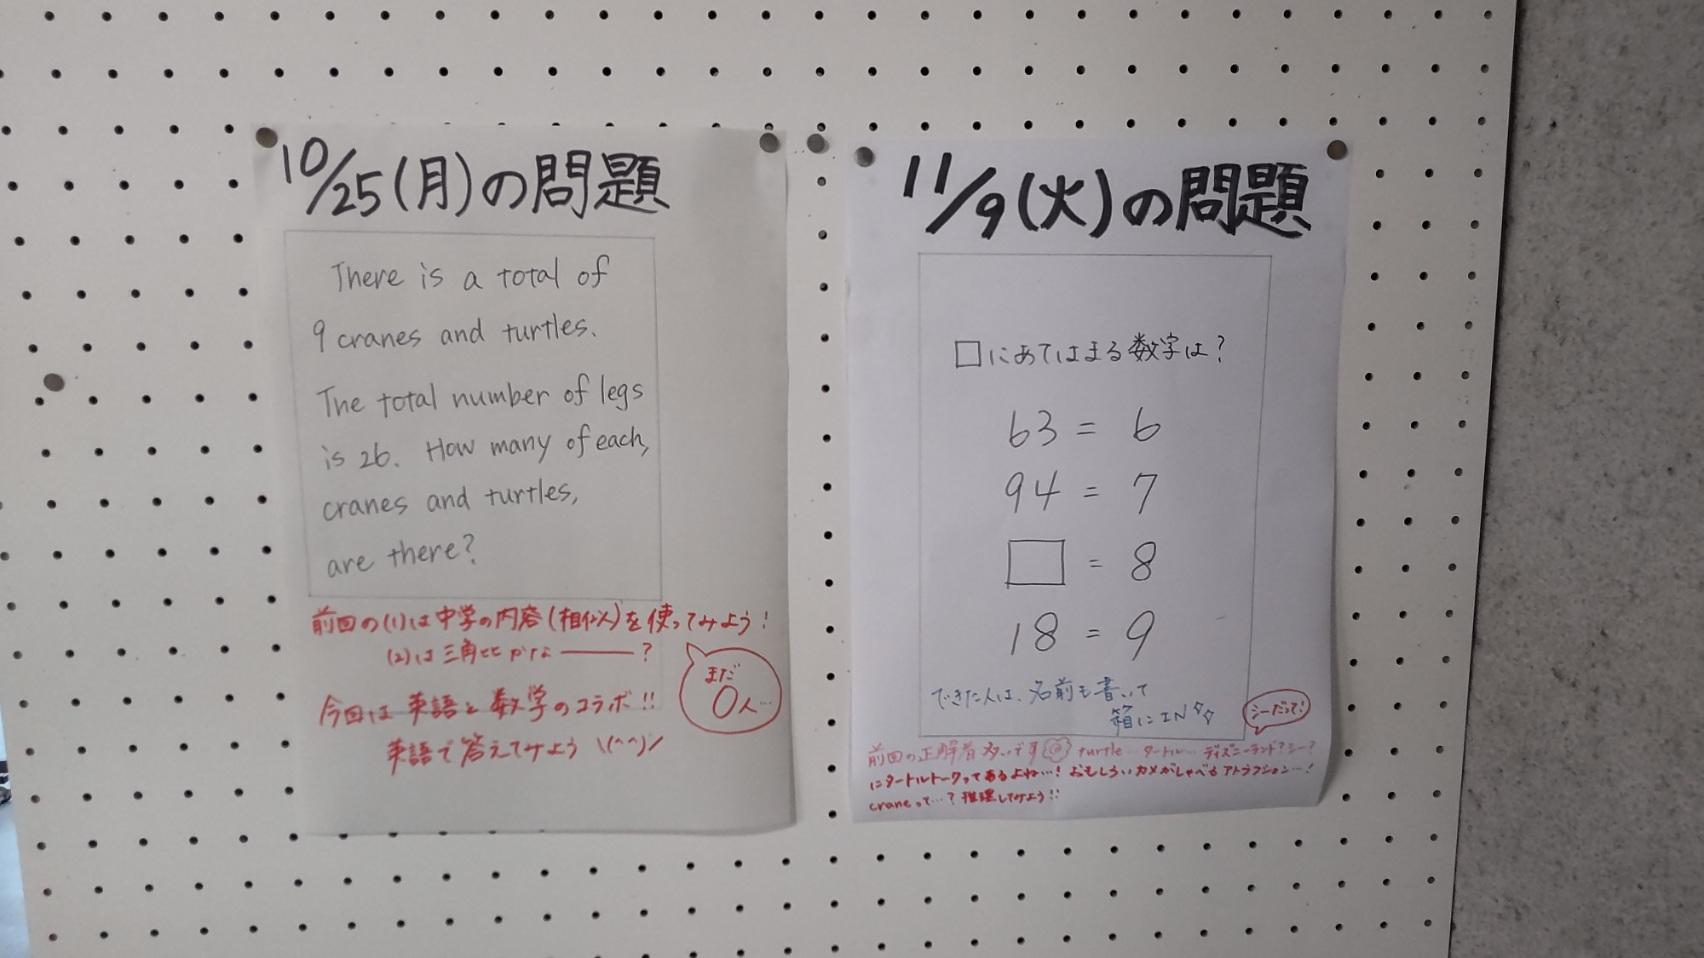 10/25(月)の問題
There is a total of
9 cranes and turtles.
The total number of legs
is 26. How many of each,
cranes and turtles,
are there?
前回の(1)は中学の内容(相似)を使ってみよう!
(2)は三角比かなー?
まだ
0人…
今回は英語と数学のコラボ!!
英語で答えてみよう \(^^)/
11/9(火)の問題
□にあてはまる数字は?
63 = 6
94 = 7
□ = 8
18 = 9
できた人は、名前も書いて
箱にIN
シーだって!
前回の正解者 多いです turtle… タートル… ディズニーランド?シー?
にタートルトークってあるよね…! おもしろいカメがしゃべるアトラクション…!
craneって…? 推理してみよう!!